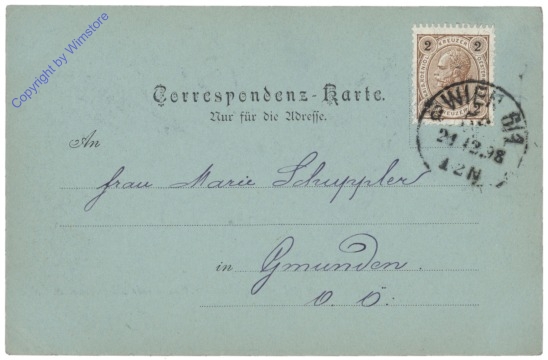 Copyright by Wimstore
2 KREUZER 2
Correspondenz-Karte.
Nur für die Adresse.
WIEN 6/1
21.12.98
12N
An
Frau Marie Schuppler
in Gmunden.
O. Ö.